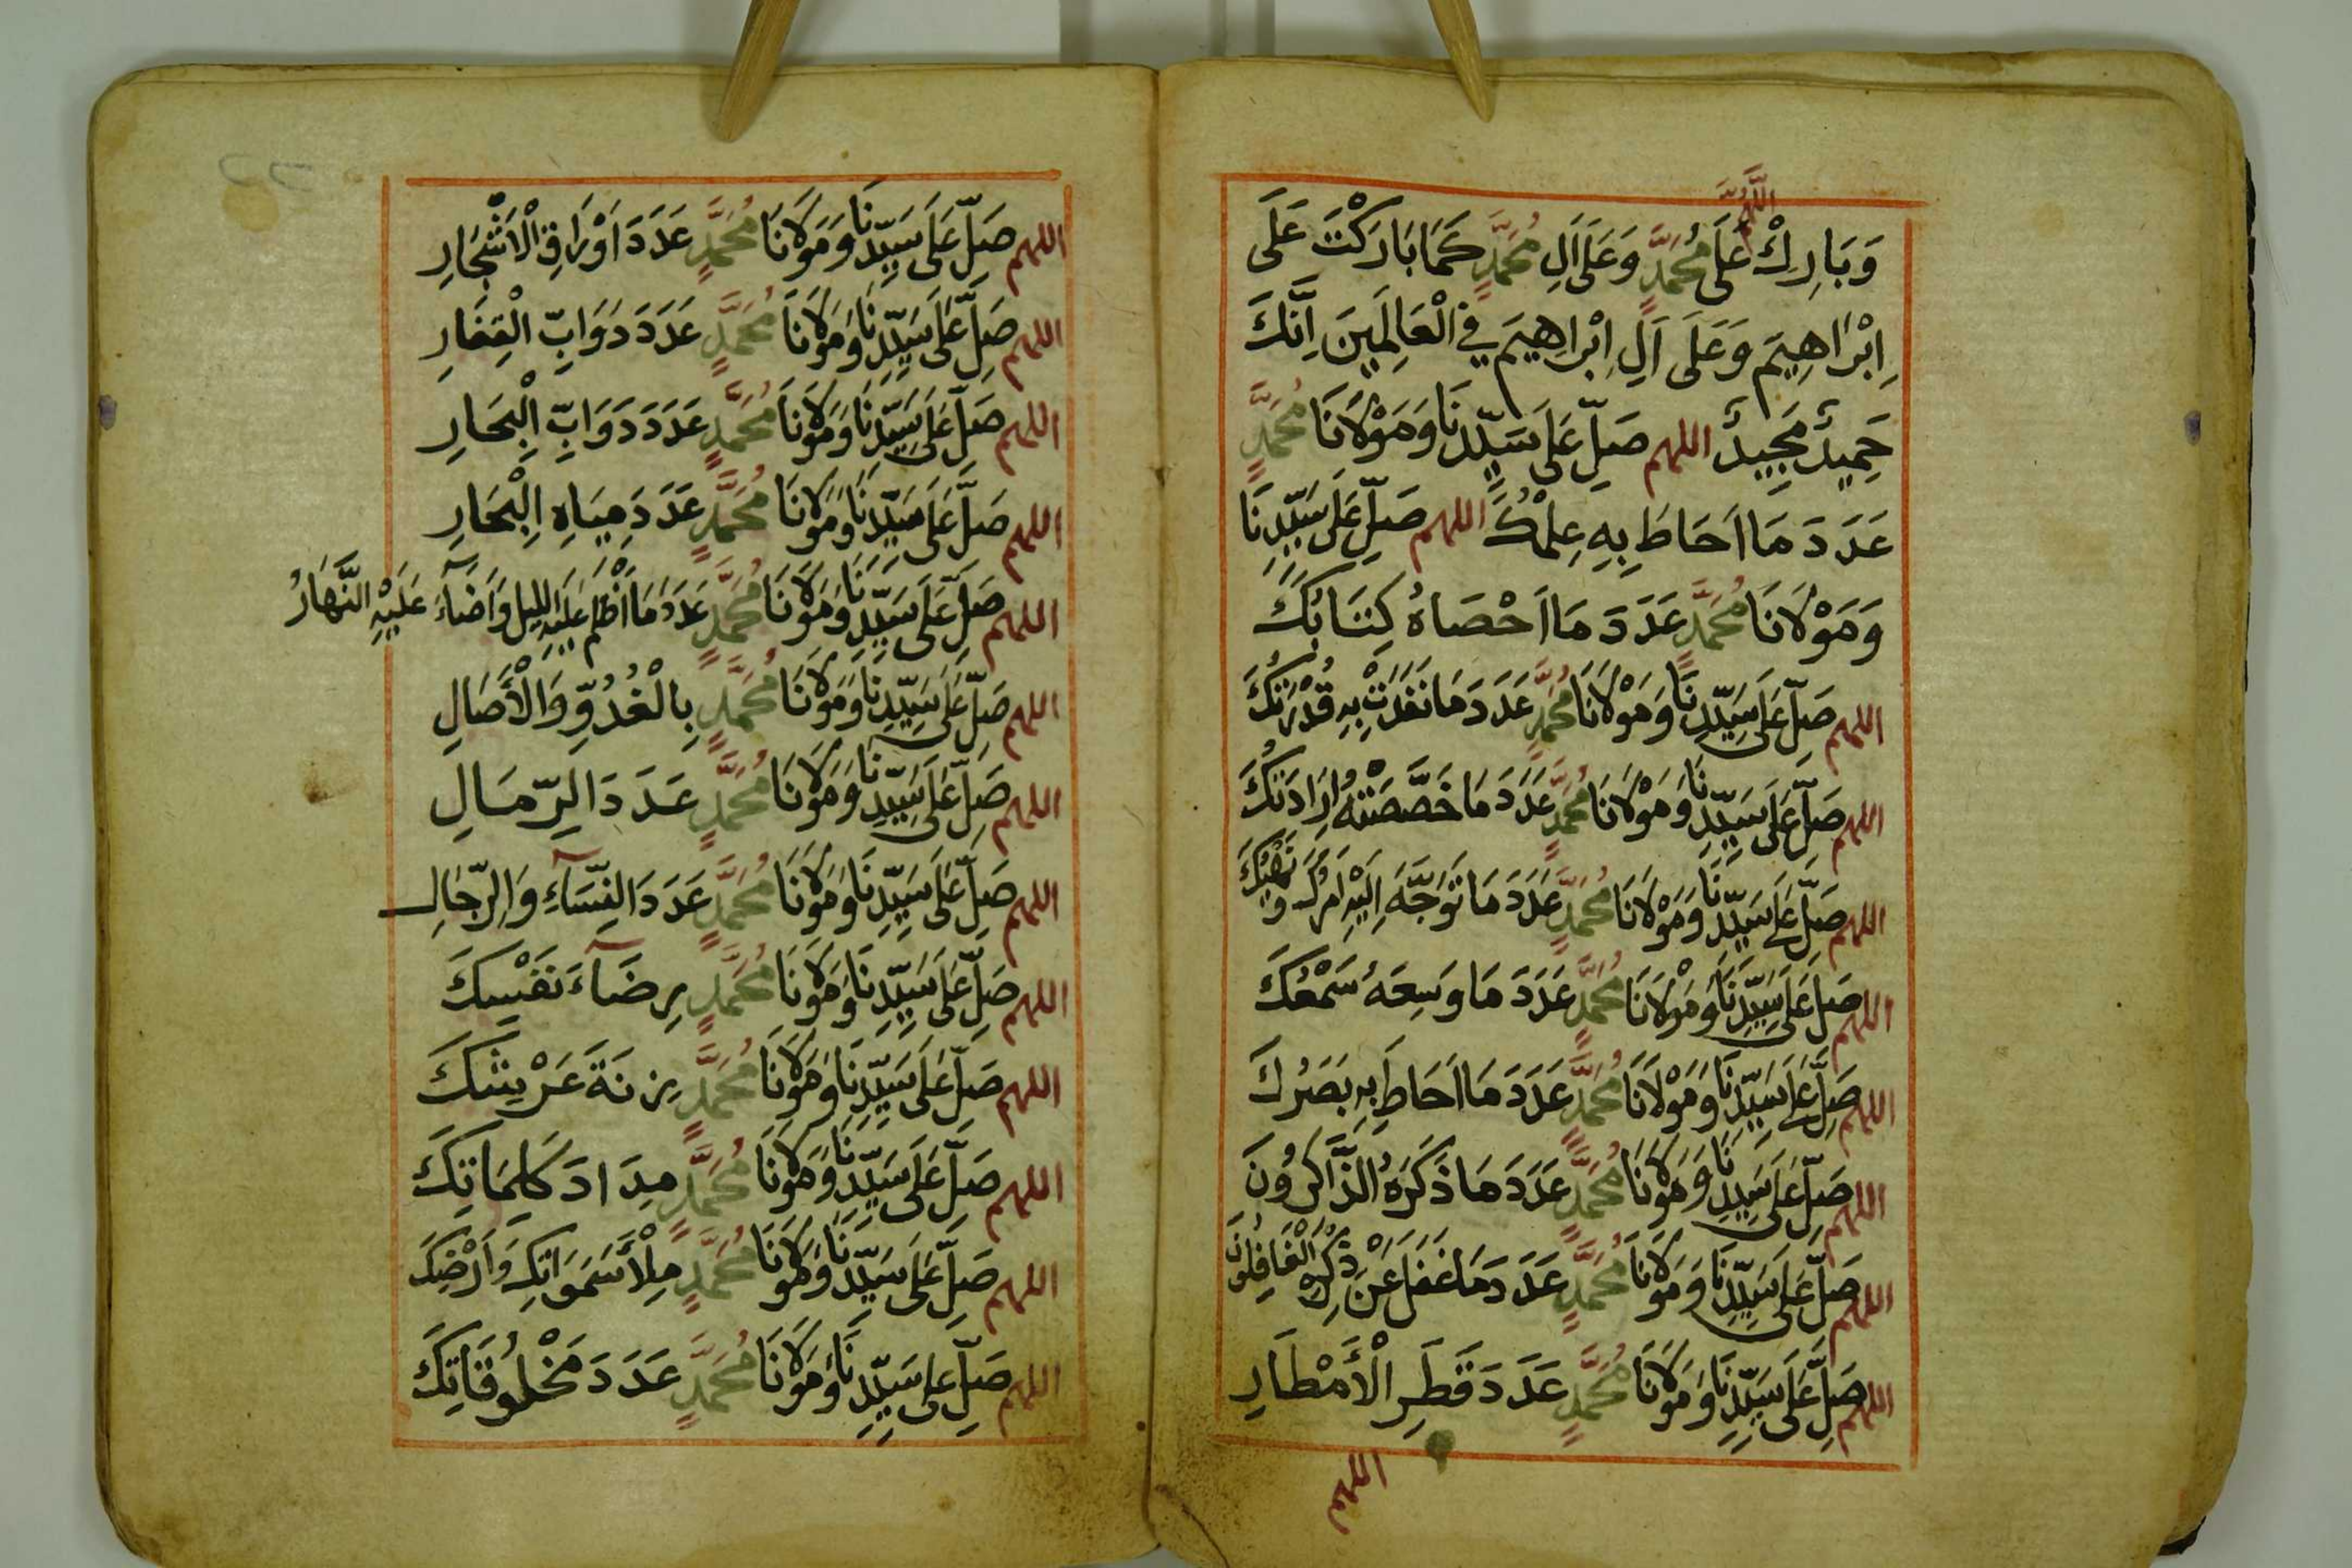 اللَّهُمَّ
وَبَارِكْ عَلَى مُحَمَّدٍ وَعَلَى اَلِ مُحَمَّدٍ كَمَا بَارَكْتَ عَلَى
اِبْرَاهِيمَ وَعَلَى اَلِ اِبْرَاهِيمَ فِي الْعَالَمِينَ اِنَّكَ
حَمِيدٌ مَجِيدٌ اللهم صَلِّ عَلَى سَيِّدِنَا وَمَوْلَانَا مُحَمَّدٍ
عَدَدَ مَا اَحَاطَ بِهِ عِلْمُكَ اللهم صَلِّ عَلَى سَيِّدِنَا
وَمَوْلَانَا مُحَمَّدٍ عَدَدَ مَا اَحْصَاهُ كِتَابُكَ
اللهم صَلِّ عَلَى سَيِّدِنَا وَمَوْلَانَا مُحَمَّدٍ عَدَدَ مَا نَفَذَتْ بِهِ قُدْرَتُكَ
اللهم صَلِّ عَلَى سَيِّدِنَا وَمَوْلَانَا مُحَمَّدٍ عَدَدَ مَا خَصَّصَتْهُ اِرَادَتُكَ
اللهم صَلِّ عَلَى سَيِّدِنَا وَمَوْلَانَا مُحَمَّدٍ عَدَدَ مَا تَوَجَّهَ اِلَيْهِ اَمْرُكَ وَنَهْيُكَ
اللهم صَلِّ عَلَى سَيِّدِنَا وَمَوْلَانَا مُحَمَّدٍ عَدَدَ مَا وَسِعَهُ سَمْعُكَ
اللهم صَلِّ عَلَى سَيِّدِنَا وَمَوْلَانَا مُحَمَّدٍ عَدَدَ مَا اَحَاطَ بِهِ بَصَرُكَ
اللهم صَلِّ عَلَى سَيِّدِنَا وَمَوْلَانَا مُحَمَّدٍ عَدَدَ مَا ذَكَرَهُ الذَّاكِرُونَ
اللهم صَلِّ عَلَى سَيِّدِنَا وَمَوْلَانَا مُحَمَّدٍ عَدَدَ مَا غَفَلَ عَنْ ذِكْرِهِ الْغَافِلُونَ
اللهم صَلِّ عَلَى سَيِّدِنَا وَمَوْلَانَا مُحَمَّدٍ عَدَدَ قَطَرِ الْأَمْطَارِ
اللهم
اللهم صَلِّ عَلَى سَيِّدِنَا وَمَوْلَانَا مُحَمَّدٍ عَدَدَ اَوْرَاقِ الْاَشْجَارِ
اللهم صَلِّ عَلَى سَيِّدِنَا وَمَوْلَانَا مُحَمَّدٍ عَدَدَ دَوَابِّ الْقِفَارِ
اللهم صَلِّ عَلَى سَيِّدِنَا وَمَوْلَانَا مُحَمَّدٍ عَدَدَ دَوَابِّ الْبِحَارِ
اللهم صَلِّ عَلَى سَيِّدِنَا وَمَوْلَانَا مُحَمَّدٍ عَدَدَ مِيَاهِ الْبِحَارِ
اللهم صَلِّ عَلَى سَيِّدِنَا وَمَوْلَانَا مُحَمَّدٍ عَدَدَ مَا اَظْلَمَ عَلَيْهِ الليل وَاَضَآءَ عَلَيْهِ النَّهَارُ
اللهم صَلِّ عَلَى سَيِّدِنَا وَمَوْلَانَا مُحَمَّدٍ بِالْغُدُوِّ وَالْأَصَالِ
اللهم صَلِّ عَلَى سَيِّدِنَا وَمَوْلَانَا مُحَمَّدٍ عَدَدَ الرِّمَالِ
اللهم صَلِّ عَلَى سَيِّدِنَا وَمَوْلَانَا مُحَمَّدٍ عَدَدَ النِّسَآءِ وَالرِّجَالِ
اللهم صَلِّ عَلَى سَيِّدِنَا وَمَوْلَانَا مُحَمَّدٍ رِضَآءَ نَفْسِكَ
اللهم صَلِّ عَلَى سَيِّدِنَا وَمَوْلَانَا مُحَمَّدٍ زِنَةَ عَرْشِكَ
اللهم صَلِّ عَلَى سَيِّدِنَا وَمَوْلَانَا مُحَمَّدٍ مِدَادَ كَلِمَاتِكَ
اللهم صَلِّ عَلَى سَيِّدِنَا وَمَوْلَانَا مُحَمَّدٍ مِلْأَ سَمَوَاتِكَ وَاَرْضِكَ
اللهم صَلِّ عَلَى سَيِّدِنَا وَمَوْلَانَا مُحَمَّدٍ عَدَدَ مَخْلُوقَاتِكَ